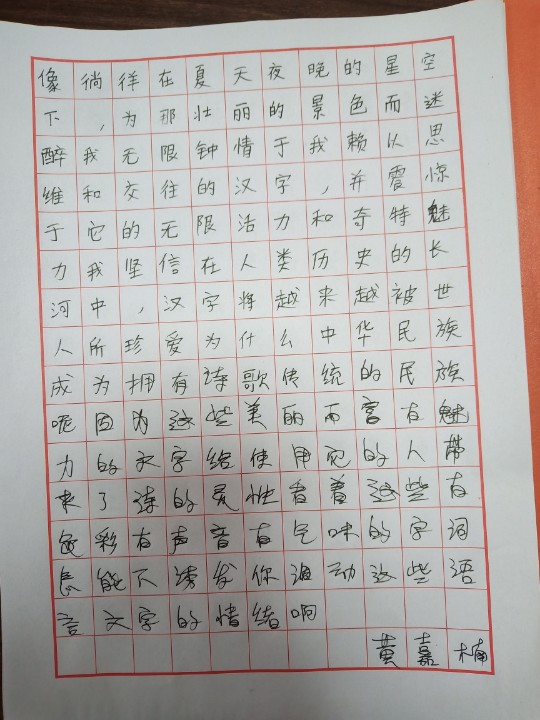 像徜徉在夏天夜晚的星空
下，为那壮丽的景色而迷
醉我无限钟情于我赖以思
维和交往的汉字，并震惊
于它的无限活力和奇特魅
力我坚信在人类历史的长
河中，汉字将越来越被世
人所珍爱为什么中华民族
成为拥有诗歌传统的民族
呢因为这些美丽而富有魅
力的文字给使用它的人带
来了诗的灵性看着这些有
色彩有声音有气味的字词
怎能不诱发你调动这些语
言文字的情绪啊
黄嘉楠